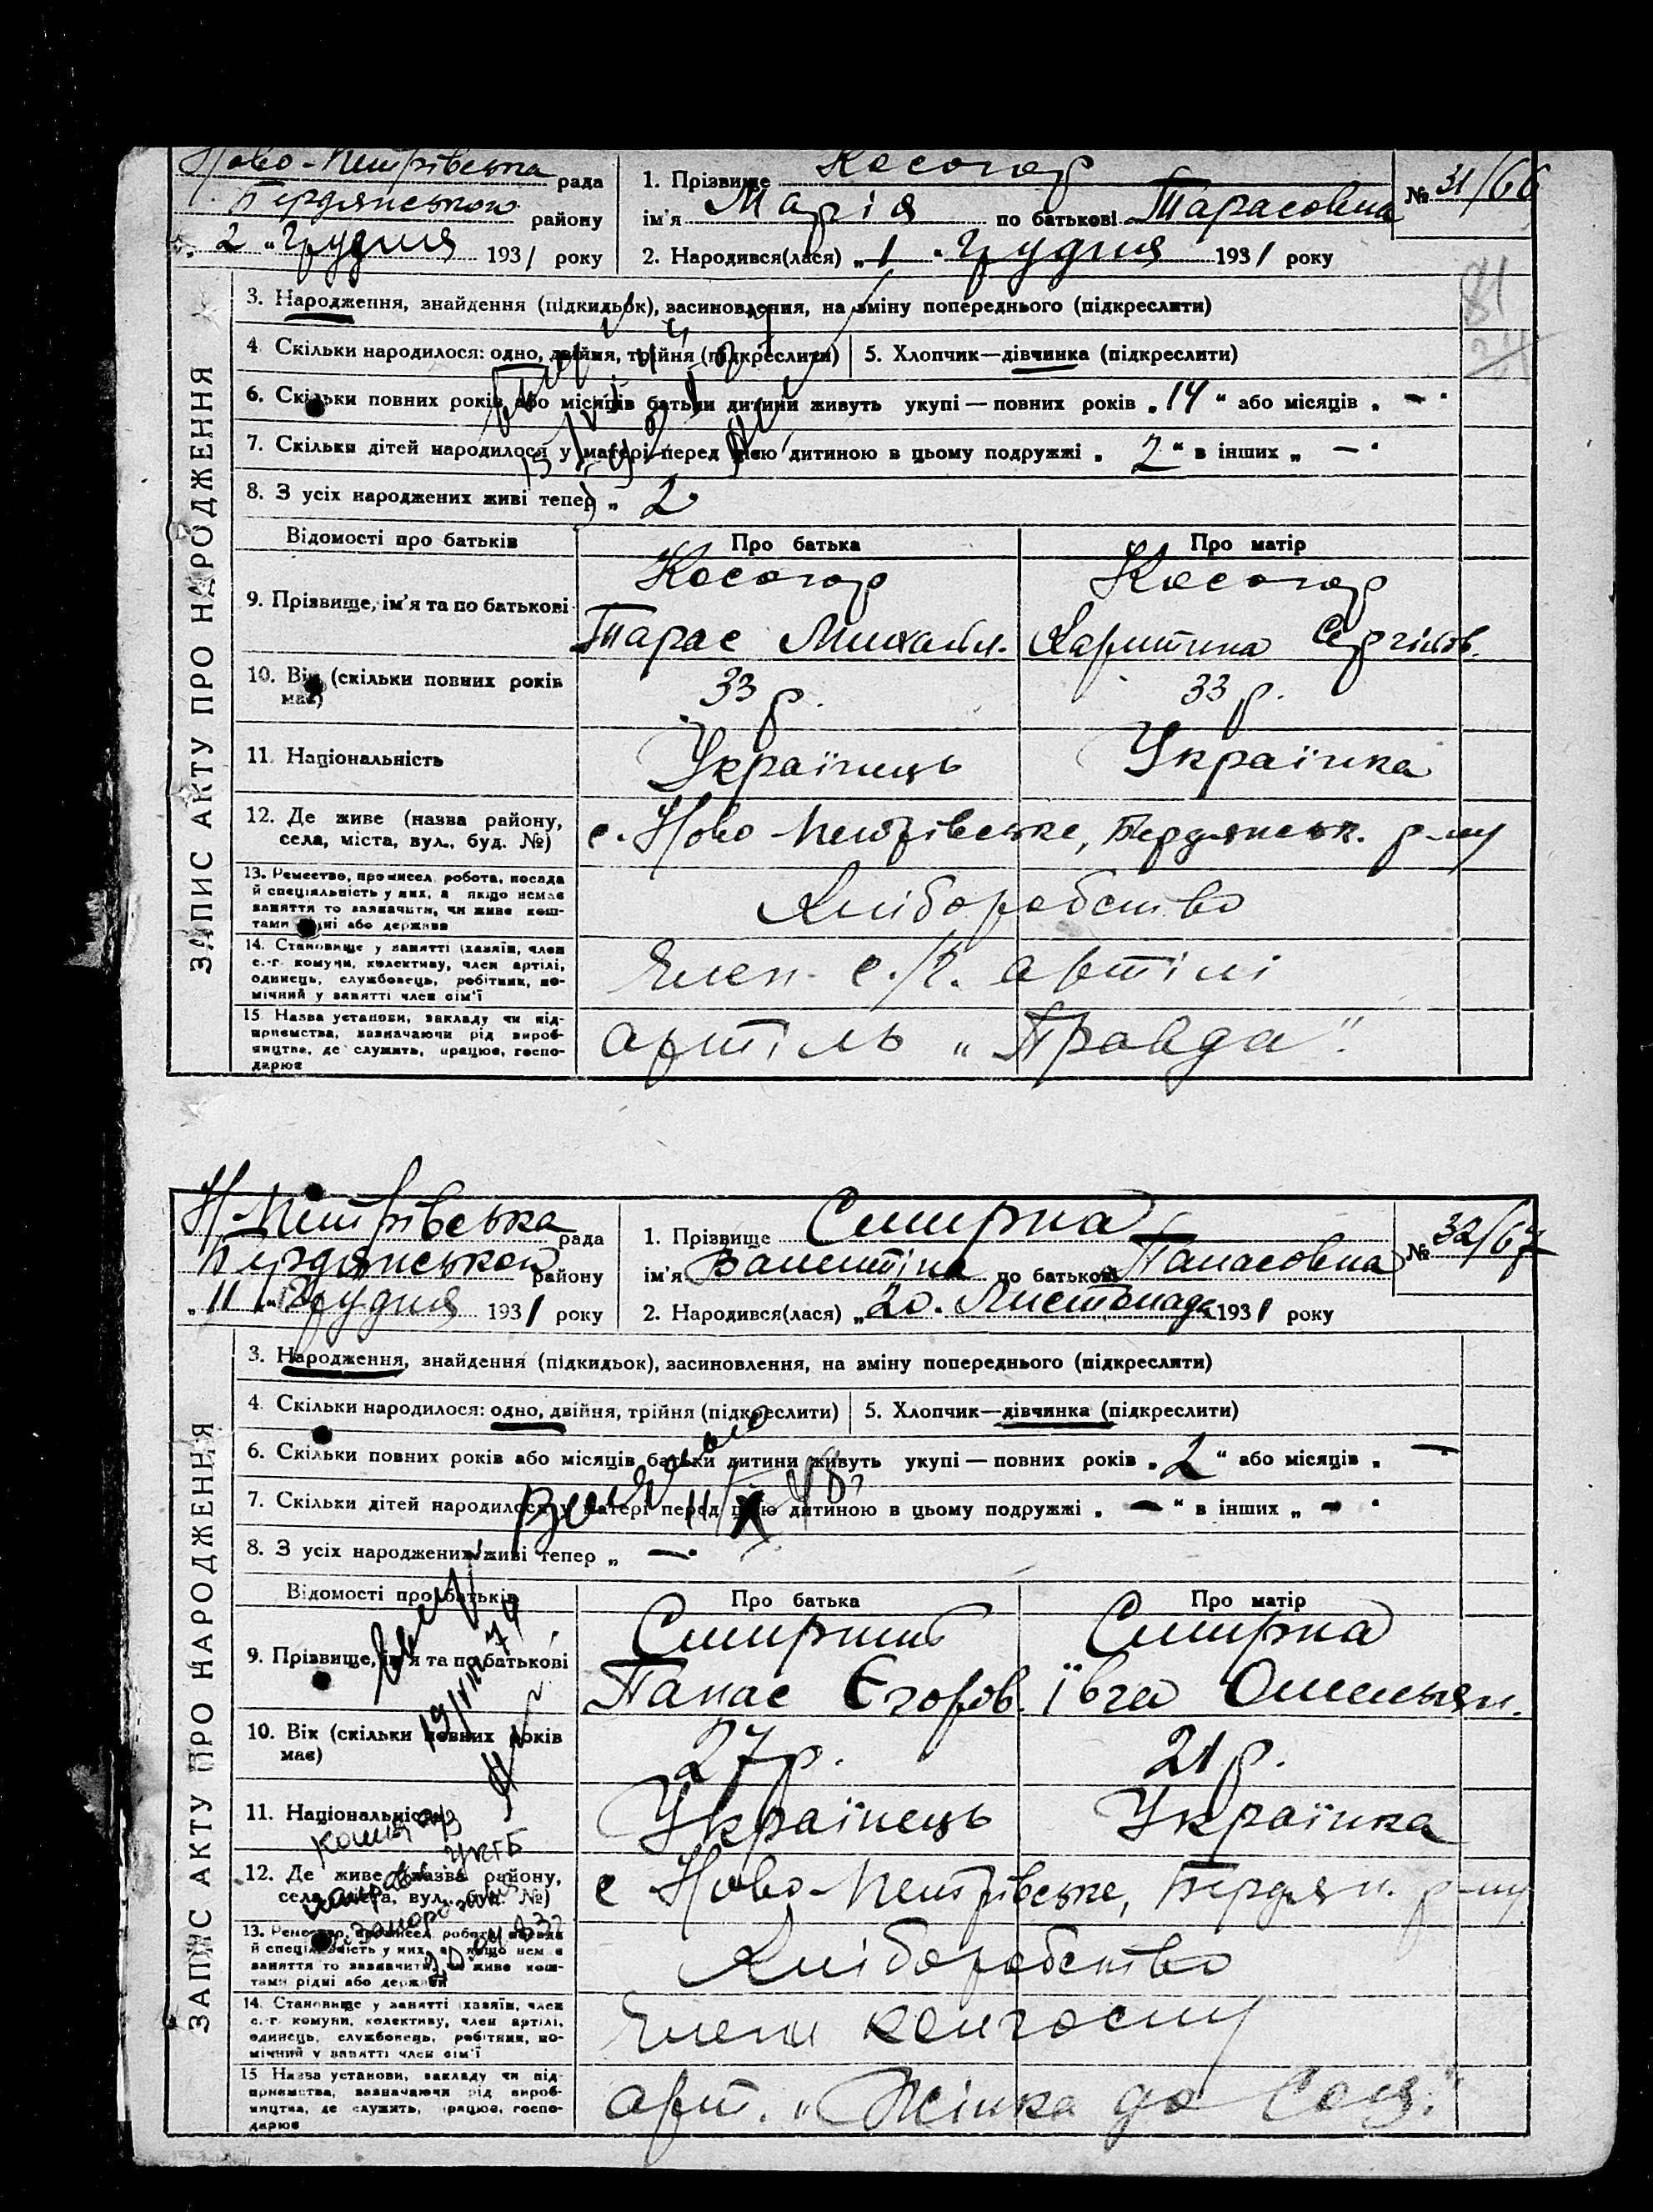 Ново-Петрівська рада
Бердянського району
„ 2 " Грудня 1931 року
1. Прізвище Косогор
ім'я Марія по батькові Тарасовна
№ 31/66
2. Народився(лася) „ 1 " Грудня 1931 року
81
ЗАПИС АКТУ ПРО НАРОДЖЕННЯ
3. Народження, знайдення (підкидьок), засиновлення, на зміну попереднього (підкреслити)
4. Скільки народилося: одно, двійня, трійня (підкреслити)
5. Хлопчик—дівчинка (підкреслити)
6. Скільки повних років або місяців батьки дитини живуть укупі — повних років „ 14 " або місяців „ — "
7. Скільки дітей народилося у матері перед цією дитиною в цьому подружжі „ 2 " в інших „ — "
8. З усіх народжених живі тепер „ 2
Відомості про батьків
Про батька
Про матір
9. Прізвище, ім'я та по батькові
Косогор
Тарас Михайл.
Косогор
Харитина Сергіївн.
10. Вік (скільки повних років має)
33 р.
33 р.
11. Національність
Українець
Українка
12. Де живе (назва району,
села, міста, вул., буд. №)
с. Ново-Петрівське, Бердянськ. р-ну
13. Ремество, промисел, робота, посада
й спеціяльність у них, а якщо немає
заняття то зазначити, чи живе кош-
тами рідні або держави
Хліборобство
14. Становище у занятті (хазяїн, член
с.-г. комуни, колективу, член артілі,
одинець, службовець, робітник, по-
мічний у занятті член сім'ї
Член с./г. артілі
15. Назва установи, закладу чи під-
приємства, зазначаючи рід вироб-
ництва, де служить, працює, госпо-
дарює
артіль „Правда"
Н-Петрівська рада
Бердянського району
„ 11 " Грудня 1931 року
1. Прізвище Смирна
ім'я Валентіна по батькові Панасовна
№ 32/67
2. Народився(лася) „ 20 " Листопада 1931 року
ЗАПИС АКТУ ПРО НАРОДЖЕННЯ
3. Народження, знайдення (підкидьок), засиновлення, на зміну попереднього (підкреслити)
4. Скільки народилося: одно, двійня, трійня (підкреслити)
5. Хлопчик—дівчинка (підкреслити)
6. Скільки повних років або місяців батьки дитини живуть укупі — повних років „ 2 " або місяців „ — "
7. Скільки дітей народилося у матері перед цією дитиною в цьому подружжі „ — " в інших „ — "
8. З усіх народжених живі тепер „ — "
Відомості про батьків
Про батька
Про матір
9. Прізвище, ім'я та по батькові
Смирний
Панас Єгоров.
Смирна
Ївга Омельян.
10. Вік (скільки повних років
має)
27 р.
21 р.
11. Національність
Українець
Українка
12. Де живе (назва району,
села, міста, вул., буд. №)
с Ново-Петрівське, Бердян. р-ну
13. Ремество, промисел, робота, посада
й спеціяльність у них, а якщо нема є
заняття то зазначити, чи живе кош-
тами рідні або держави
Хліборобство
14. Становище у занятті (хазяїн, член
с.-г. комуни, колективу, член артілі,
одинець, службовець, робітник, по-
мічний у занятті член сім'ї
Члени колгоспу
15. Назва установи, закладу чи під-
приємства, зазначаючи рід вироб-
ництва, де служить, працює, госпо-
дарює
арт. „Жінка до Соц."